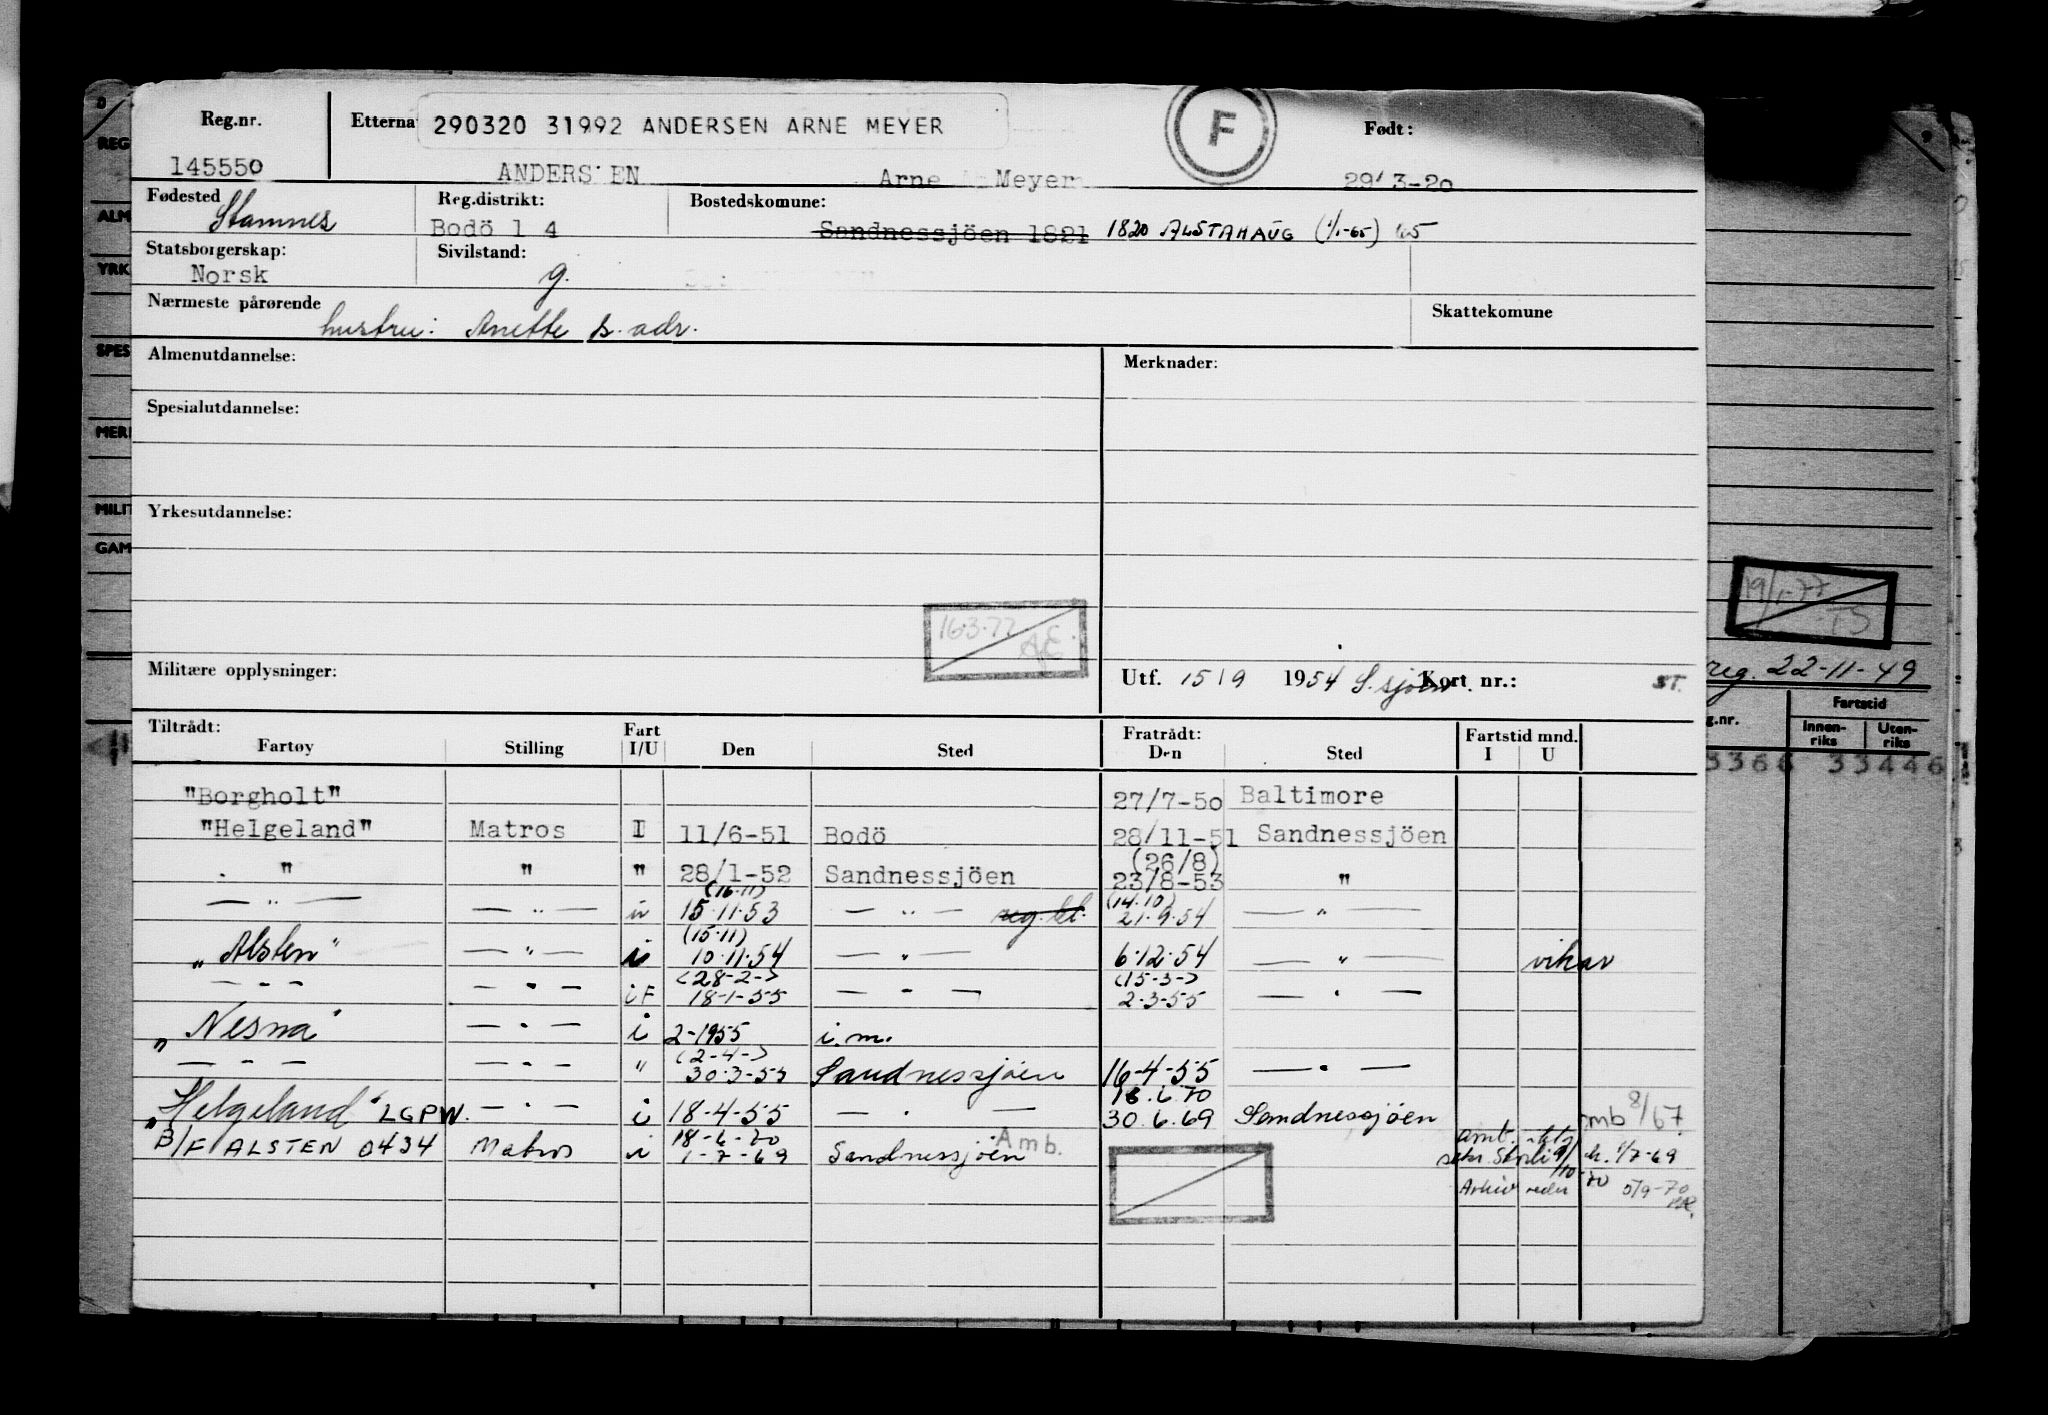 Reg.nr. Etterna 290320 31992 ANDERSEN ARNE MEYER F Født:
145550 ANDERSEN Arne Meyer 29/3-20
Fødested Stamnes Reg.distrikt: Bostedskomune:
Bodö 1 4 Sandnessjöen 1821 1820 ALSTAHAUG (1/1-65) 65
Statsborgerskap: Sivilstand:
Norsk g.
Nærmeste pårørende Skattekomune
hustru: Anette s. adr.
Almenutdannelse: Merknader:
Spesialutdannelse:
Yrkesutdannelse:
16.3.77
Militære opplysninger: Utf. 15/9 1954 S.sjöen. Kort nr.: ST.
Tiltrådt: Fart Fratrådt: Fartstid mnd.
Fartøy Stilling I/U Den Sted Den Sted I U
"Borgholt" 27/7-50 Baltimore
"Helgeland" Matros I 11/6-51 Bodö 28/11-51 Sandnessjöen
(26/8)
" " " 28/1-52 Sandnessjöen 23/8-53 "
(16.11) (14.10)
— " — — " — 15.11.53 — " — reg. bl. 21.9.54 — " —
(15.11)
"Alsten" — " — i 10.11.54 — " — 6.12.54 — " — vikar
(28-2-) (15-3-)
— " — — " — iF 18-1-55 — " — 2-3-55 — " —
"Nesna" — " — i 2-1955 i.m.
(2-4-)
— " — — " — " 30.3-55 Sandnessjöen 16-4-55 — " —
18.6.70
"Helgeland" LGPW. — " — i 18-4-55 — " — 30.6.69 Sandnessjöen mb 8/67
18-6-70 Amb.
B/F ALSTEN 0434 Matros i 1-7-69 Sandnessjöen
1/7-69
Arkiv 5/9-70
REG
ALM
YRK
SPES
MERI
MILIT
GAM
19/1-77
reg. 22-11-49
g.nr. Fartstid
Innen-riks Uten-riks
3366 33446